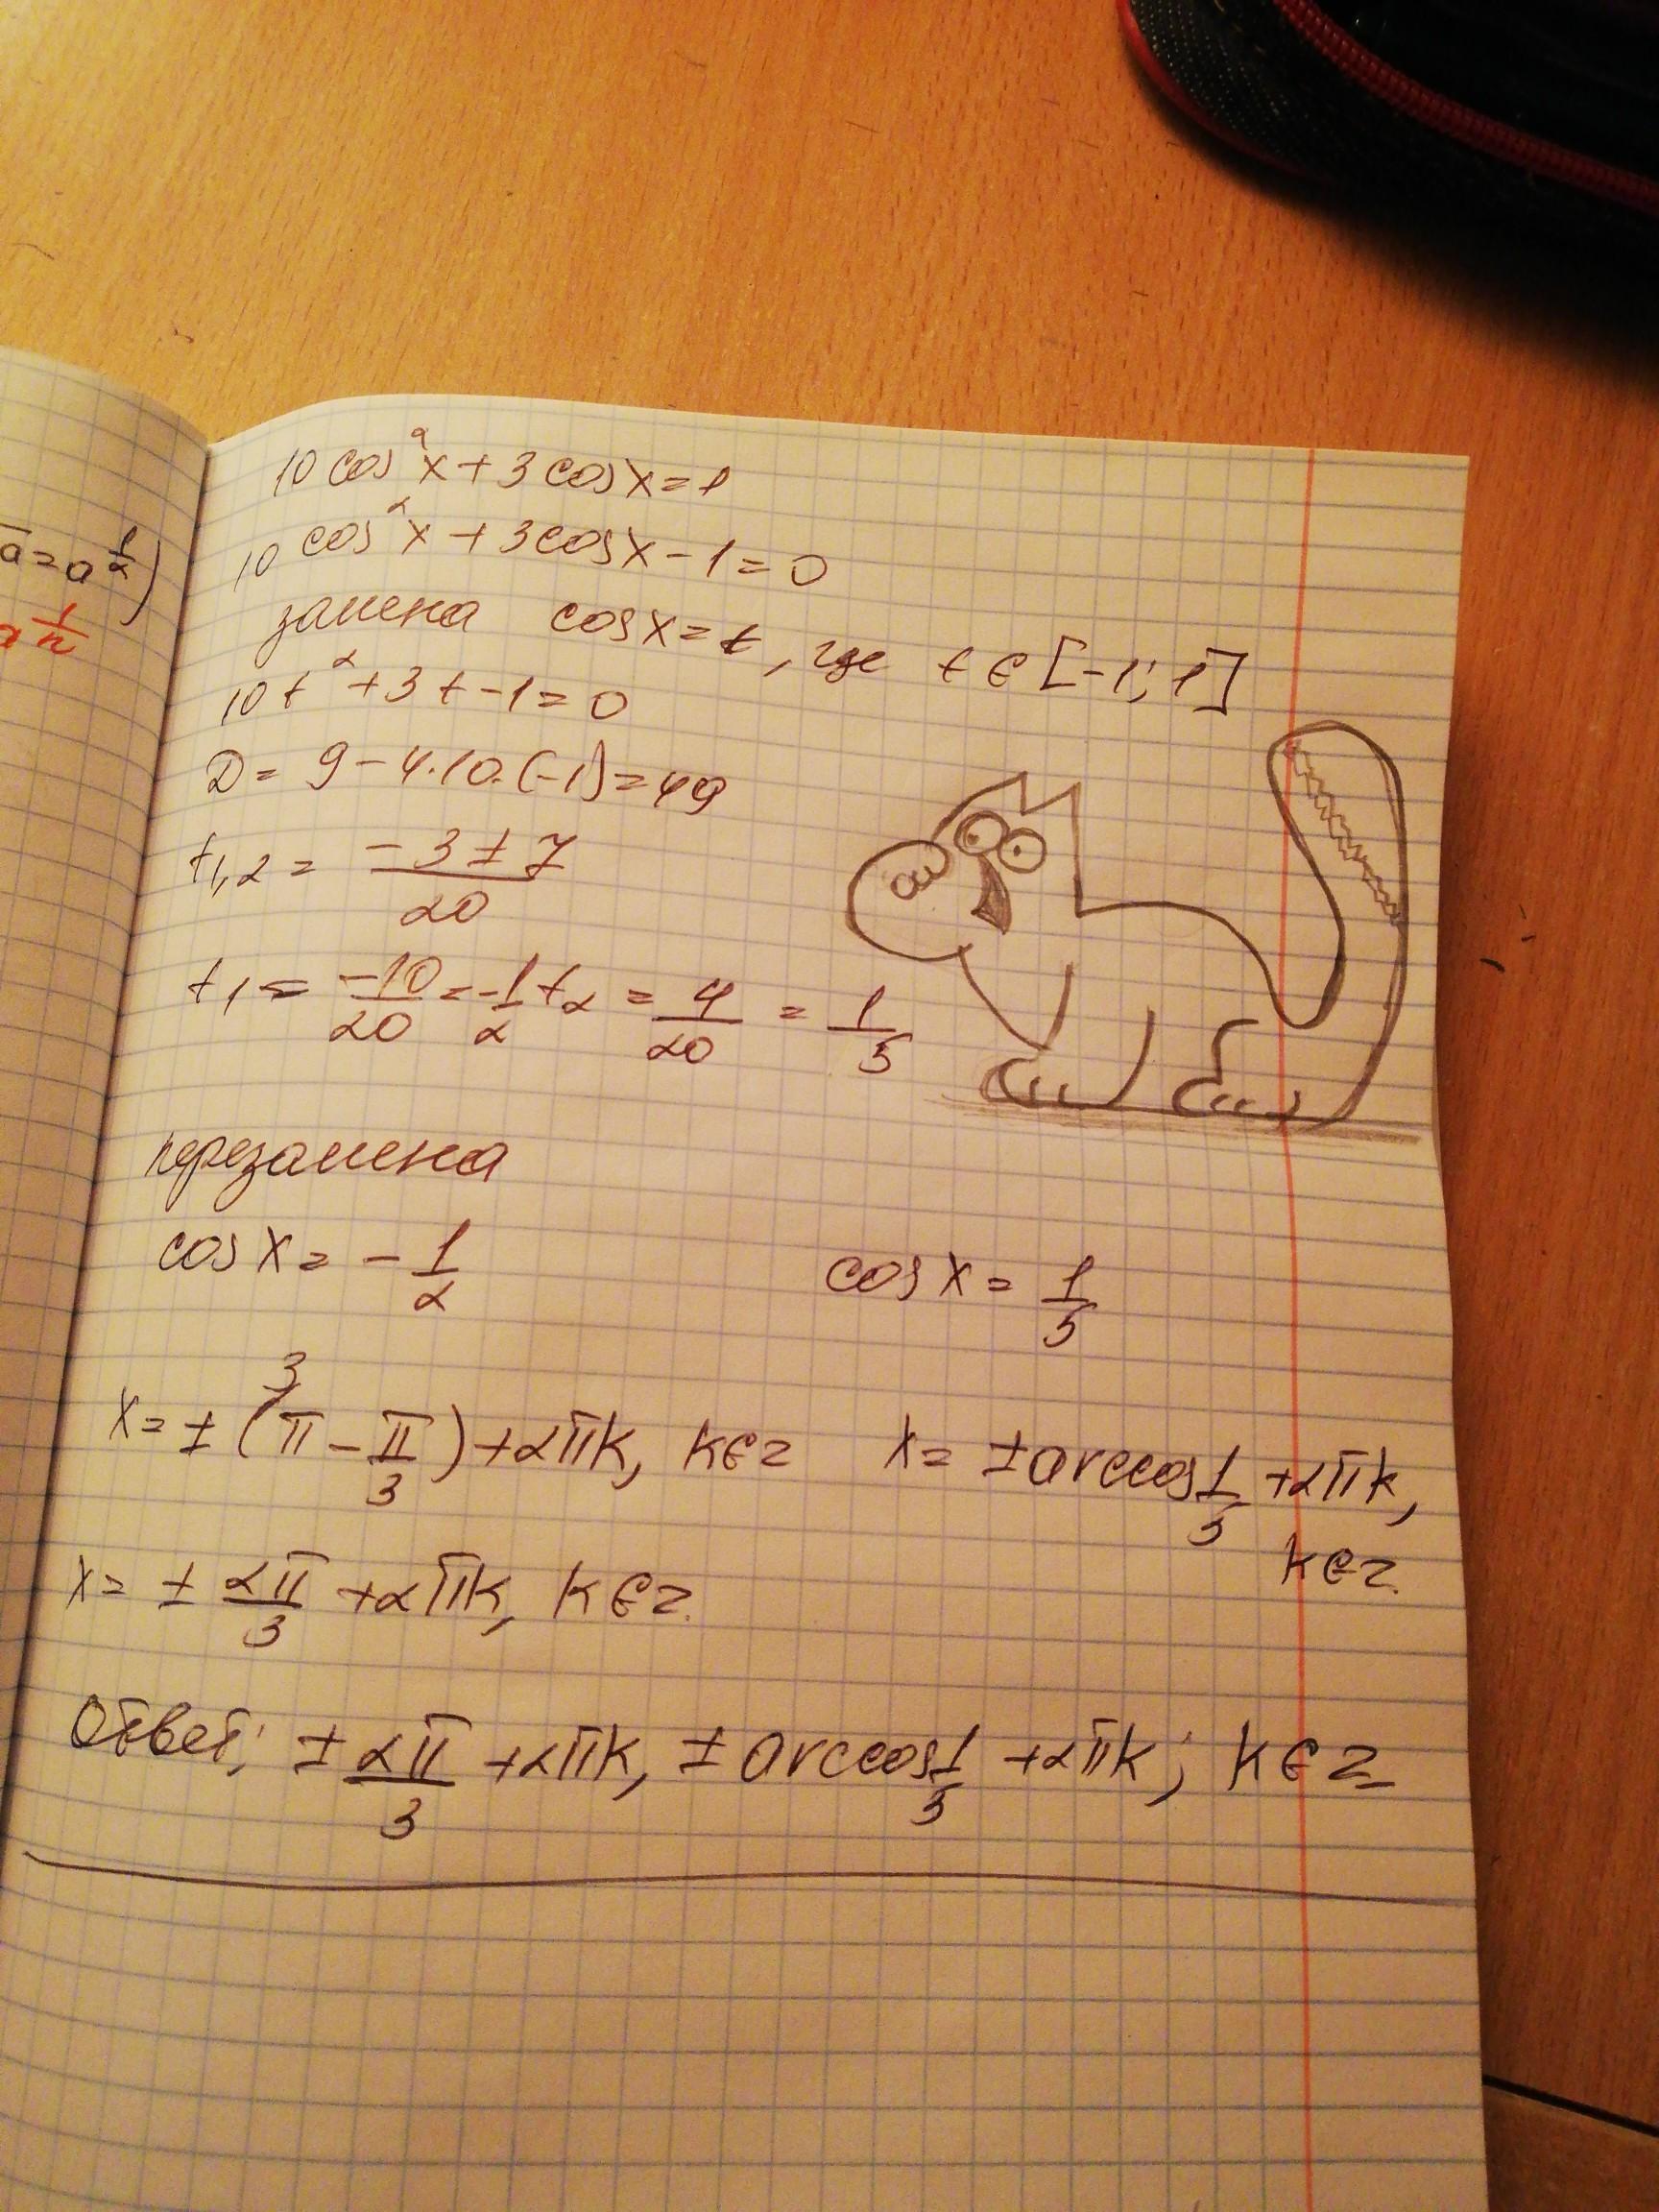 a = a^(1/2))
a^(1/n)
10 cos²x + 3 cos x = 1
10 cos²x + 3 cos x - 1 = 0
замена cos x = t, где t ∈ [-1; 1]
10t² + 3t - 1 = 0
D = 9 - 4·10·(-1) = 49
t₁,₂ = (-3 ± 7)/20
t₁ = -10/20 = -1/2 t₂ = 4/20 = 1/5
перезамена
cos x = -1/2 cos x = 1/5
x = ± (π^3 - π/3) + 2πk, k ∈ z x = ± arccos 1/5 + 2πk,
k ∈ z.
x = ± 2π/3 + 2πk, k ∈ z.
Ответ: ± 2π/3 + 2πk, ± arccos 1/5 + 2πk; k ∈ z